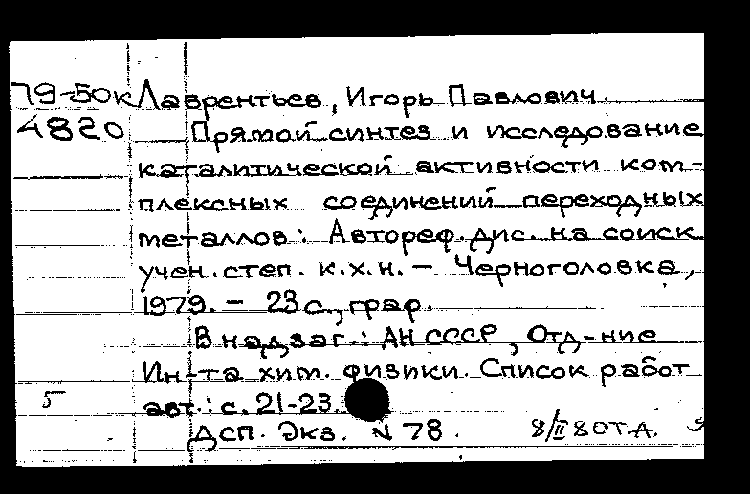 79-50к Лаврентьев, Игорь Павлович.
4820 Прямой синтез и исследование
каталитической активности ком-
плексных соединений переходных
металлов: Автореф. дис. на соиск.
учен. степ. к.х.н. – Черноголовка,
1979. – 23 с., граф.
В надзаг.: АН СССР, Отд-ние
Ин-та хим. физики. Список работ
5 авт.: с. 21-23.
ДСП. Экз. N 78. 8/II 80 Т.А.